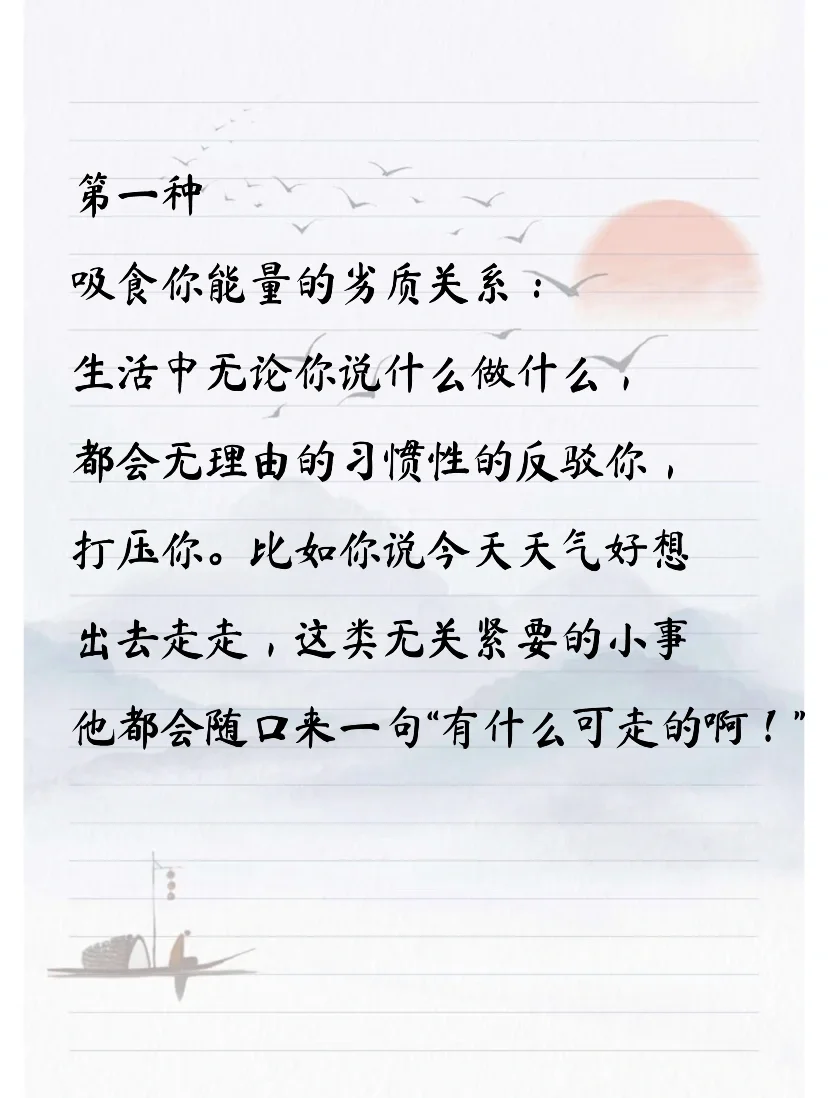 第一种
吸食你能量的劣质关系：
生活中无论你说什么做什么，
都会无理由的习惯性的反驳你，
打压你。比如你说今天天气好想
出去走走，这类无关紧要的小事
他都会随口来一句“有什么可走的啊！”